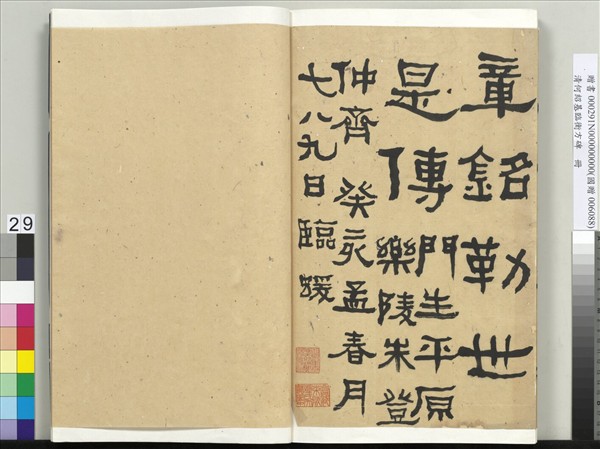 章銘勒世
是傳門生平原
樂陵朱登
仲齊癸亥孟春月
七八九日臨蝯
贈書 000291N000000000(國贈 006088)
清何紹基臨衡方碑 冊
29